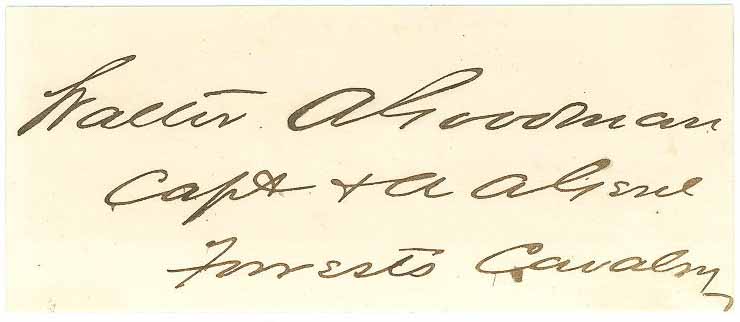 Walter A Goodman
Capt & A A Genl
Forrests Cavalry